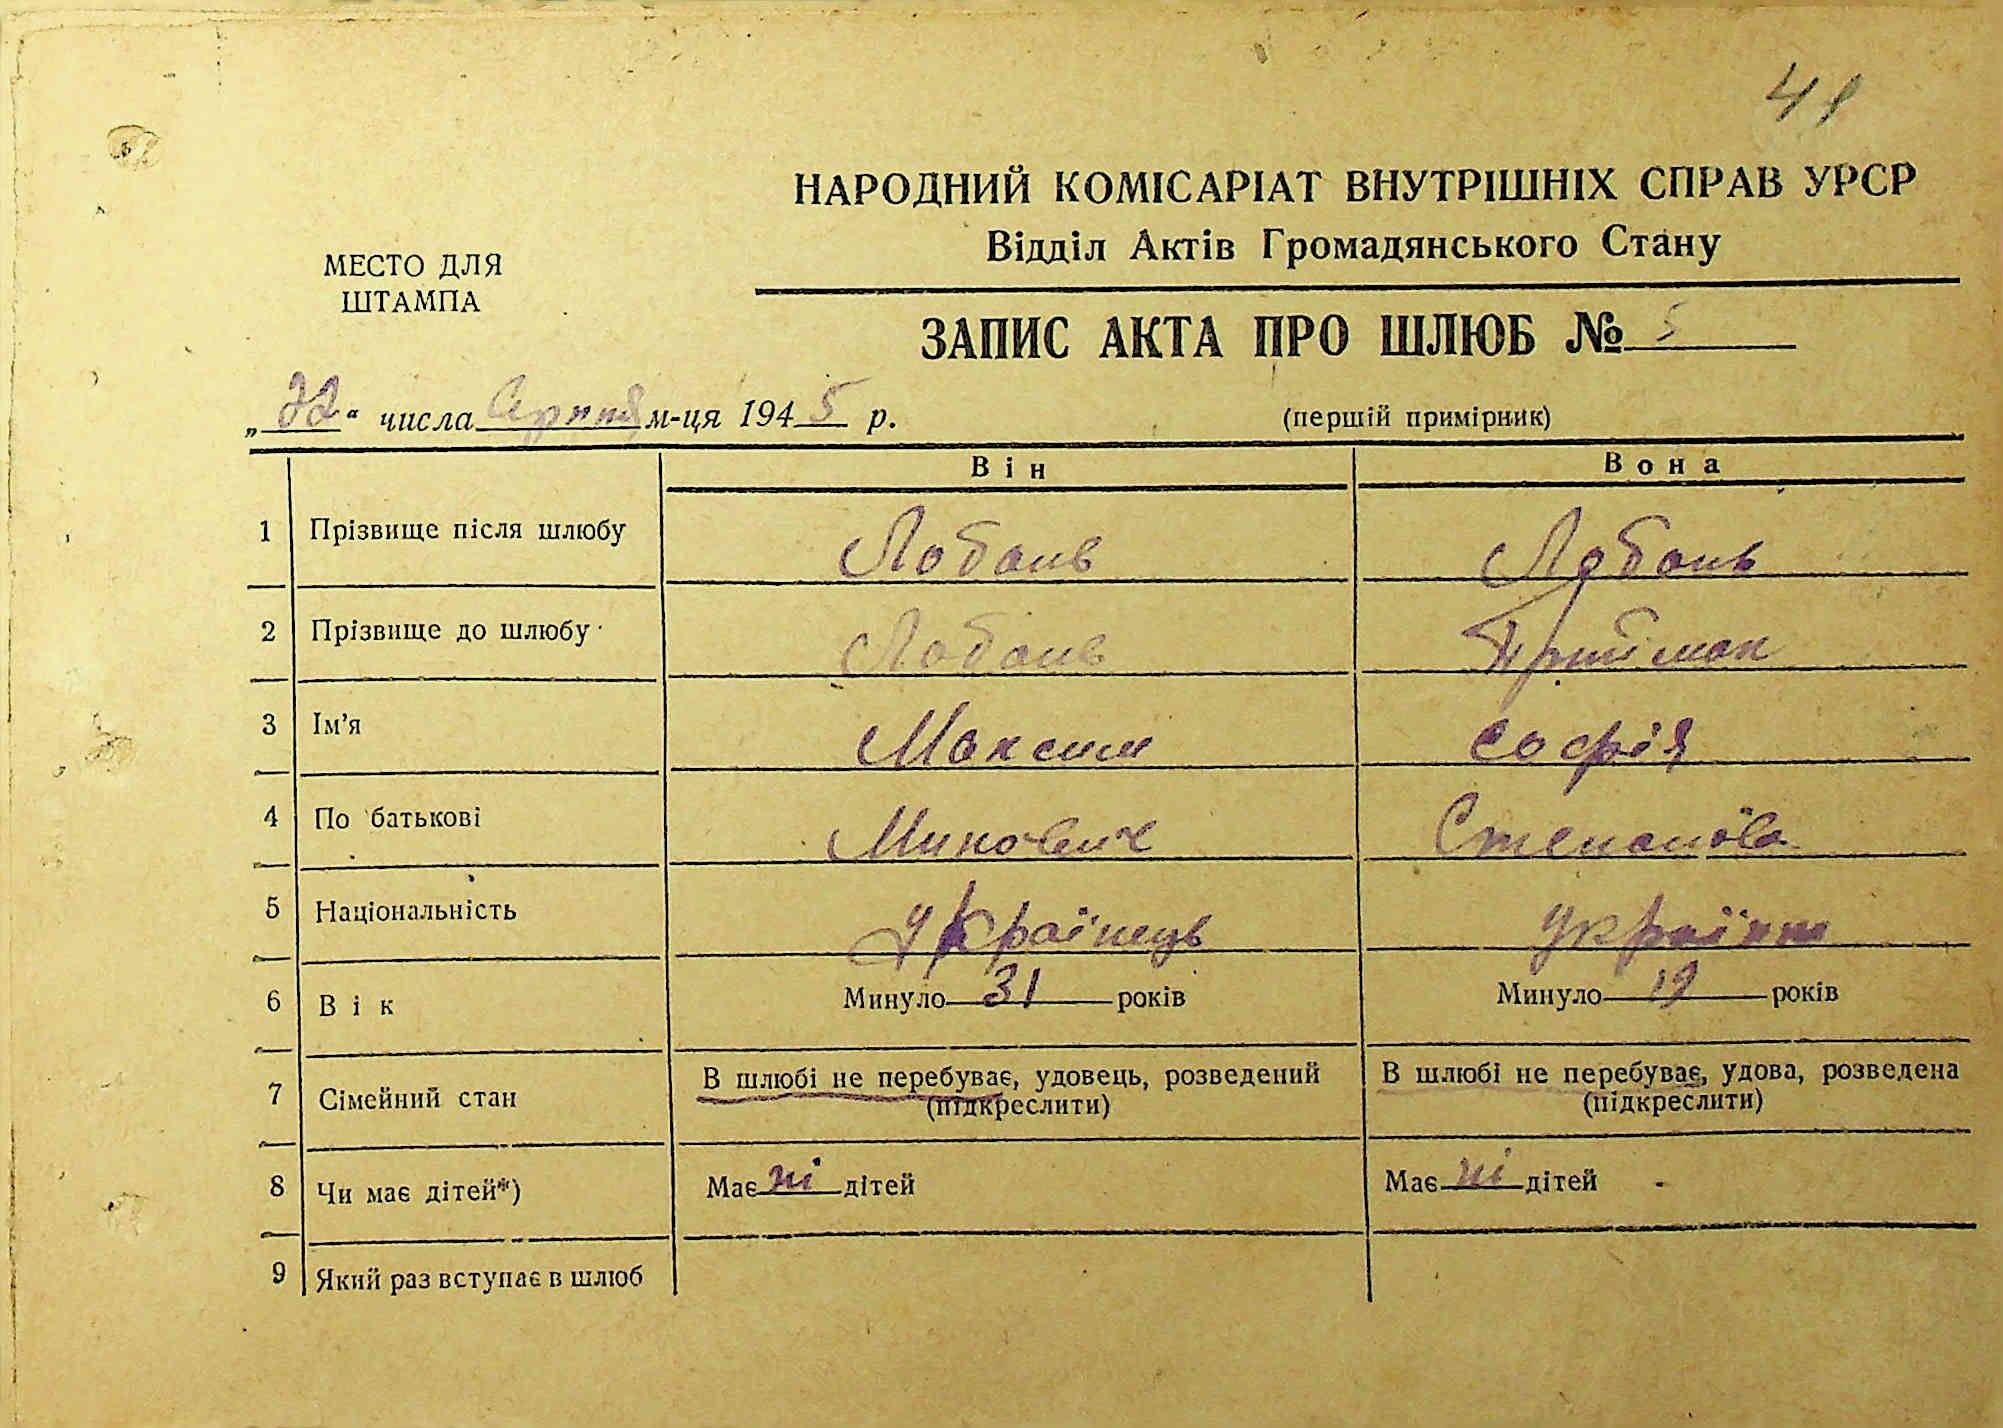 41
НАРОДНИЙ КОМІСАРІАТ ВНУТРІШНІХ СПРАВ УРСР
Відділ Актів Громадянського Стану
МЕСТО ДЛЯ
ШТАМПА
ЗАПИС АКТА ПРО ШЛЮБ № 5
„22“ числа Серпня м-ця 1945 р.
(перший примірник)
Він Вона
1 Прізвище після шлюбу Лобань Лобань
2 Прізвище до шлюбу Лобань Приймак
3 Ім'я Максим Софія
4 По батькові Минович Степанова
5 Національність Українець Україн
6 Вік Минуло 31 років Минуло 19 років
7 Сімейний стан В шлюбі не перебуває, удовець, розведений В шлюбі не перебуває, удова, розведена
(підкреслити) (підкреслити)
8 Чи має дітей*) Має ні дітей Має ні дітей
9 Який раз вступає в шлюб